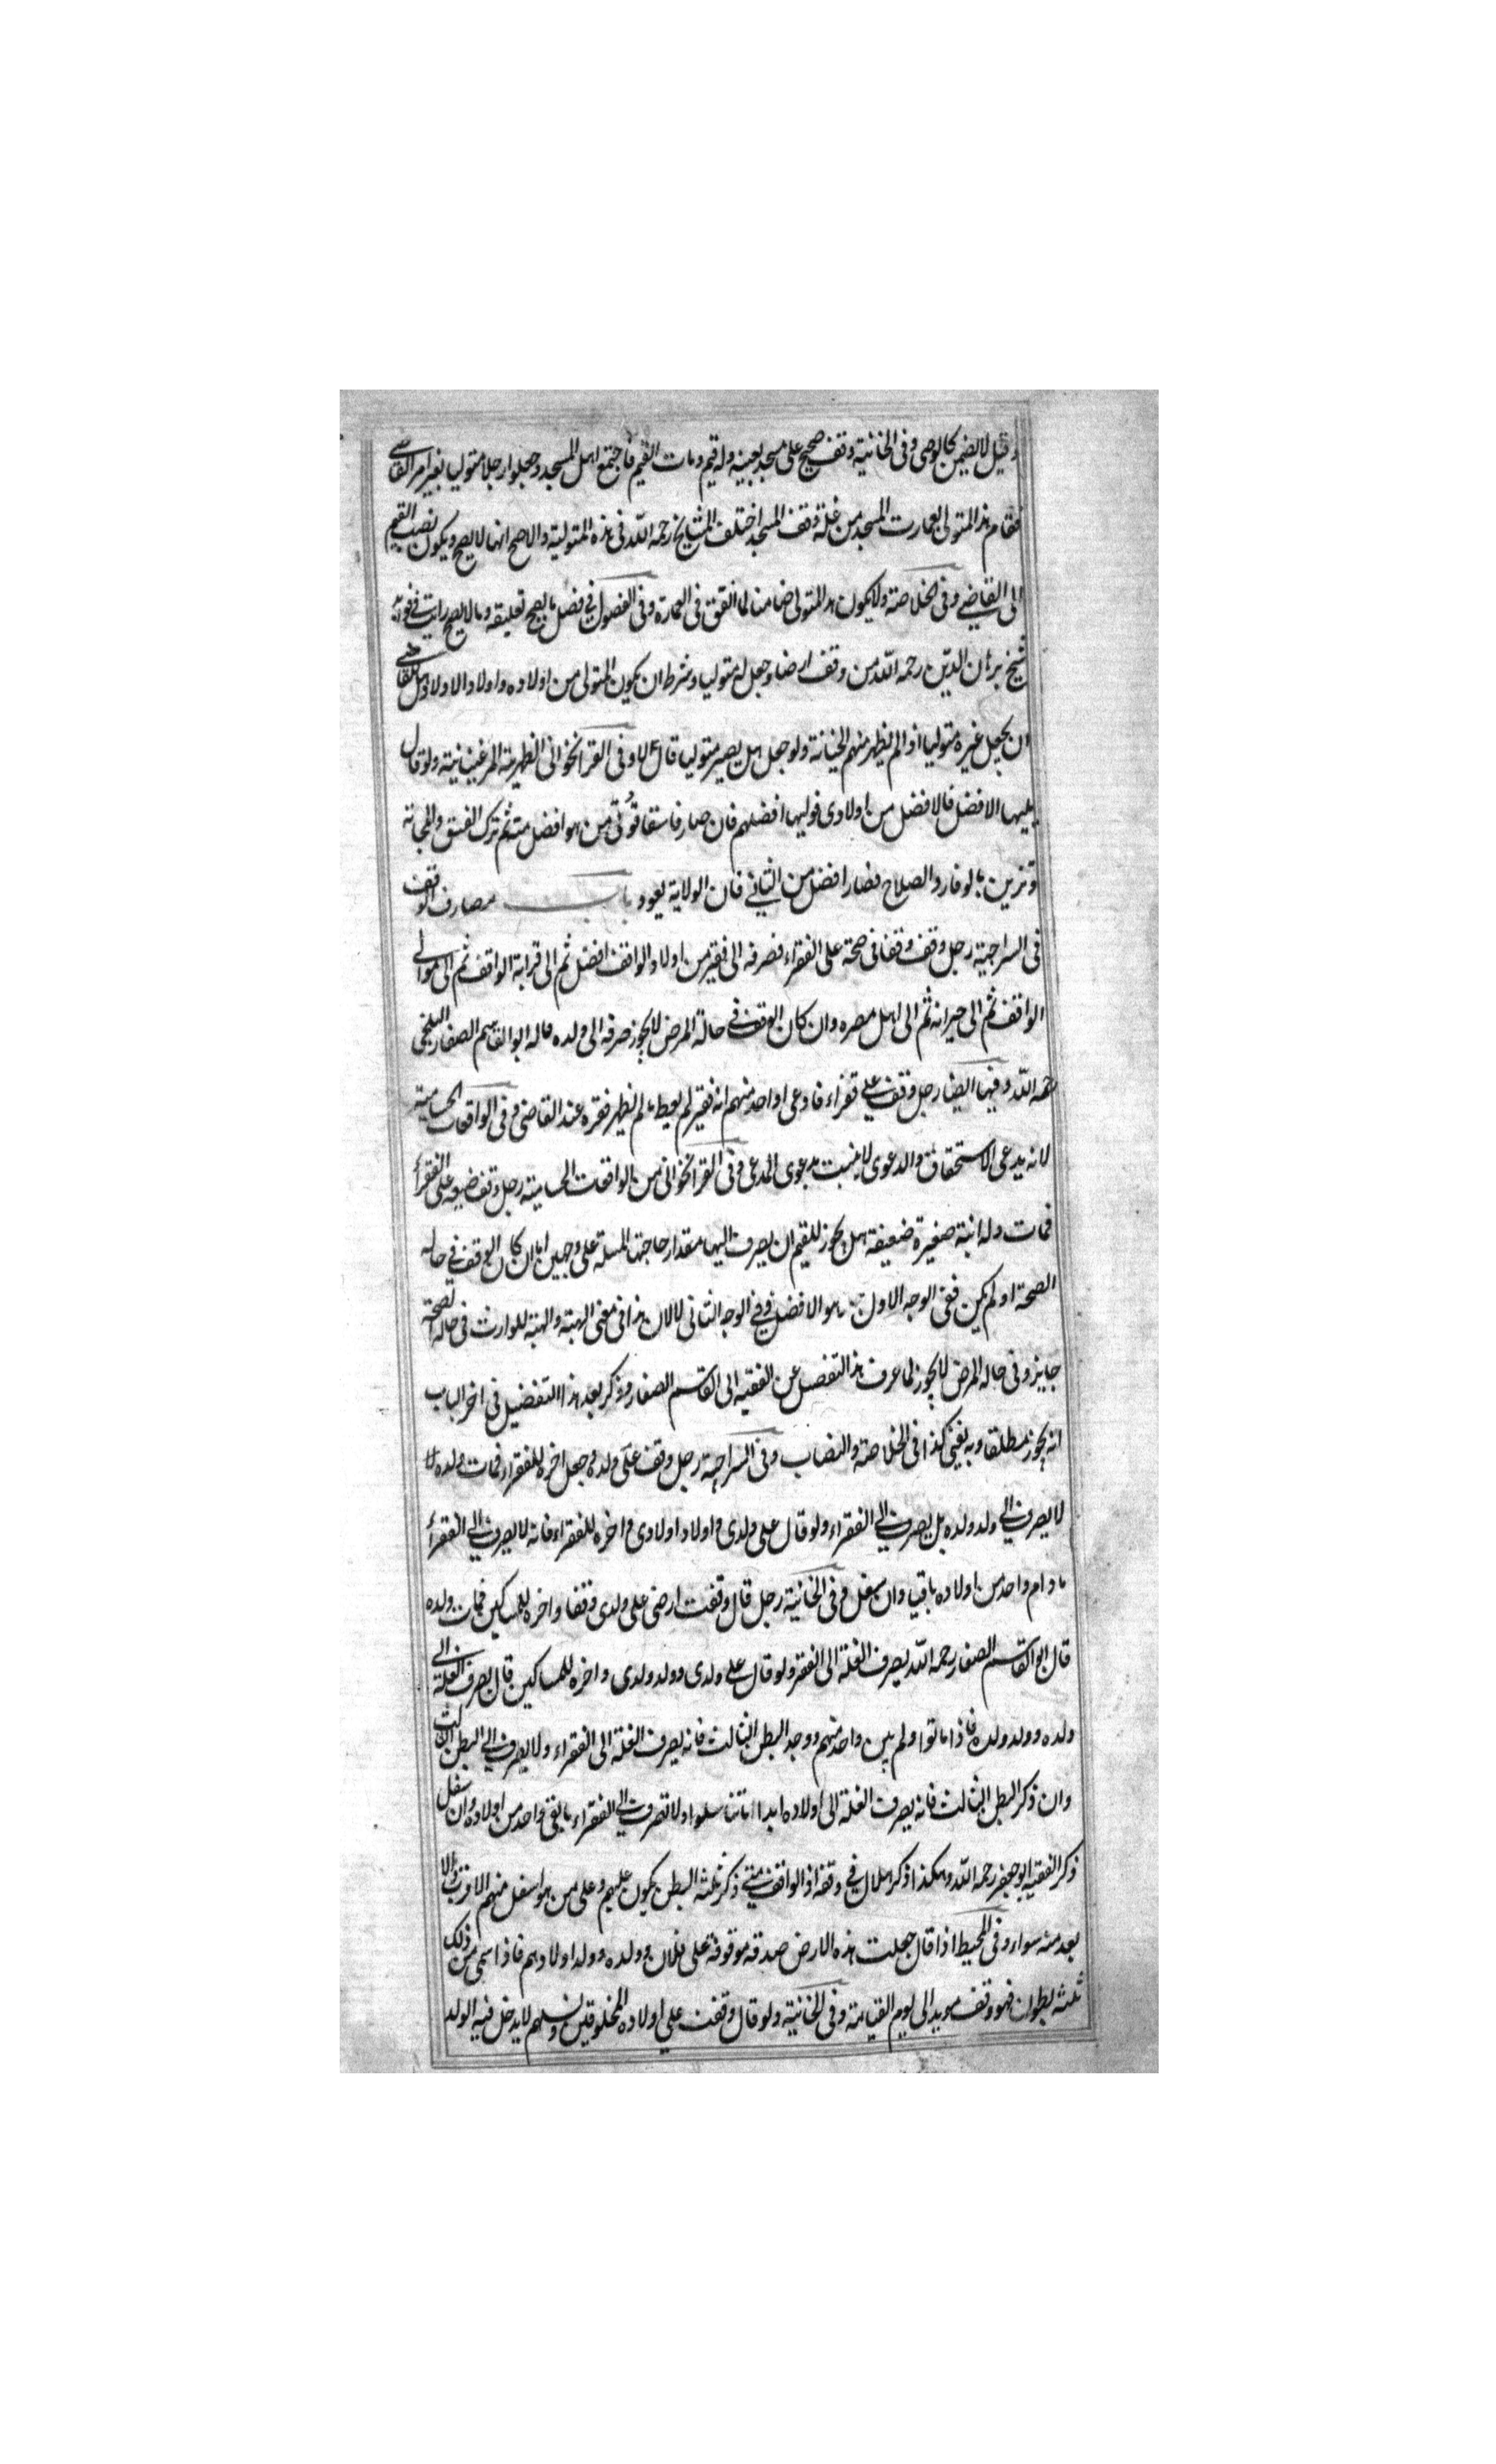 وقيل لا يضمن كالوصي وفي الخانية وقف صحيح على مسجد بعينه وله قيم ومات القيم فاجتمع اهل المسجد وجعلوا رجلا متوليا بغير امر القاضي
فقام هذا المتولي بعمارت المسجد من غلة وقف المسجد اختلف المشايخ رحمه الله في هذه المتولية والاصح انها لا يصح ويكون نصب القيم
الى القاضي وفي الخلاصة ولا يكون هذا المتولي ضامنا لما انفق في العمارة وفي الفصول في فصل ما يصح تعليقه وما لا يصح رايت في فوائد
شيخ برهان الدين رحمه الله من وقف ارضا وجعل له متوليا وشرط ان يكون المتولي من اولاده واولاد الاولاد هل للقاضي
ان يجعل غيره متوليا اذا لم يظهر منهم الخيانة ولو جعل هل يصير متوليا قال لا وفي القراخواني الظهيرية المرغينانية ولو قال
يليها الافضل فالافضل من اولادي فوليها افضلهم فان صار فاسقا تولى من هو افضل منه ثم ترك الفسق والمجانة
وتزين بالوقار والصلاح فصار افضل من الثاني فان الولاية يعود باب مصارف الوقف
في السراجية رجل وقف وقفا في صحة على الفقراء فصرفه الى فقير من اولاد الواقف افضل ثم الى قرابة الواقف ثم الى موالي
الواقف ثم الى جيرانه ثم الى اهل مصره وان كان الوقف في حالة المرض لا يجوز صرفه الى ولده قاله ابو القاسم الصفار البلخي
رحمه الله وفيها ايضا رجل وقف على فقراء فادعى واحد منهم انه فقير لم يعط ما لم يظهر فقره عند القاضي وفي الواقعات الحسامية
لانه يدعي الاستحقاق والدعوى لا يثبت بدعوى المدعي وفي القراخواني من الواقعات الحسامية رجل وقف ضيعه على الفقراء
فمات وله ابنة صغيرة ضعيفة هل يجوز للقيم ان يصرف اليها مقدار حاجتها المسئلة على وجهين اما ان كان الوقف في حالة
الصحة او لم يكن ففي الوجه الاول هو الافضل وفي الوجه الثاني لا لان هذا في معنى الهبة والهبة للوارث في حالة الصحة
جايز وفي حالة المرض لا يجوز لما عرف هذا التفصيل عن الفقيه ابي القاسم الصفار وذكر بعد هذا التفضيل في اخر الباب
انه يجوز مطلقا وبه يفتي كذا في الخلاصة والنصاب وفي السراجية رجل وقف على ولده وجعل اخره للفقراء فمات ولده لا
لا يصرف الى ولد ولده بل يصرف الى الفقراء ولو قال على ولدي واولاد اولادي واخره للفقراء فانه لا يصرف الى الفقراء
ما دام واحد من اولاده باقيا وان سفل وفي الخانية رجل قال وقفت ارضي على ولدي وقفا واخره للمساكين فمات ولده
قال ابو القاسم الصفار رحمه الله يصرف الغلة الى الفقر ولو قال على ولدي وولد ولدي واخره للمساكين قال يصرف الغلة الى
ولده وولد ولده فاذا ماتوا ولم يبق واحد منهم ووجد البطن الثالث فانه يصرف الغلة الى الفقراء ولا يصرف الى البطن الثالث
وان ذكر البطن الثالث فانه يصرف الغلة الى اولاده ابدا ما تناسلوا ولا تصرف الى الفقراء ما بقي واحد من اولاده وان سفل
ذكر الفقيه ابو جعفر رحمه الله وهكذا ذكر هلال في وقفه اذ الواقف متى ذكر ثلثه البطن يكون عليهم وعلى من هو اسفل منهم الاقرب والا
بعد منه سواء وفي المحيط اذا قال جعلت هذه الارض صدقة موقوفة على فلان وولده وولد اولادهم فاذا سمى من ذلك
ثلثه بطون فهو وقف موبد الى يوم القيامة وفي الخانية ولو قال وقفت على اولاده المخلوقين ونسلهم لا يدخل فيه الولد